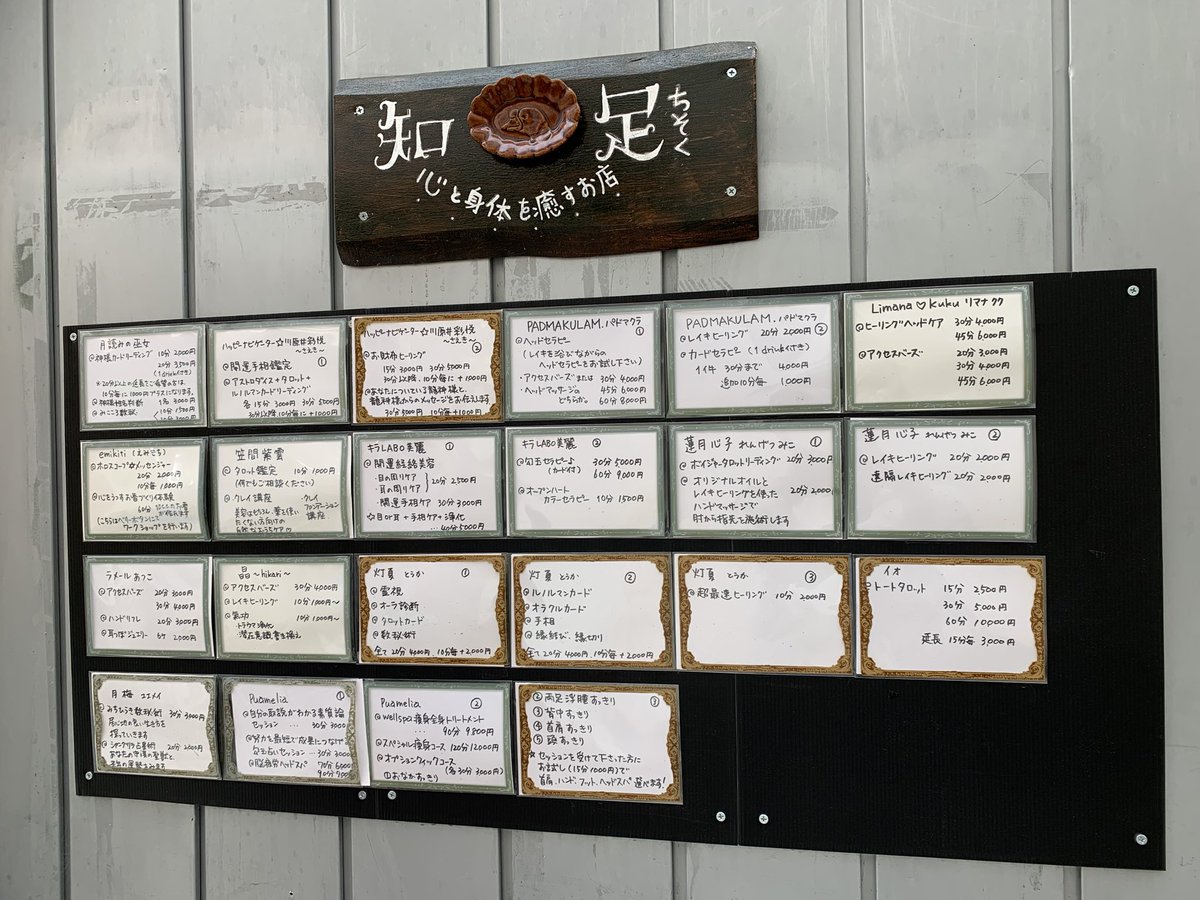 知足
ちそく
心と身体を癒すお店
月読みの巫女
@神様カードリーディング 10分 2000円
20分 3,500円
(1drink付き)
※20分以上の延長をご希望の方は、
10分毎に1000円プラスになります。
ハッピーナビゲーター☆川原井彩悦
~さえき~
①
@開運手相鑑定
@アストロダイス+タロット+
ルノルマンカードリーディング
各15分 3000円 30分 5000円
30分以降、10分毎に+1000円
ハッピーナビゲーター☆川原井彩悦
~さえき~
②
@お財布ヒーリング
15分 3000円 30分 5000円
30分以降、10分毎に+1000円
@あなたについている龍神様と、
龍神様からのメッセージをお伝えします
30分 5000円 10分毎+1000円
PADMAKULAM. パドマクラ
①
@ヘッドセラピー
(レイキを浴びながらの
ヘッドセラピーをお試し下さい)
・アクセスバーズまたは 30分 4000円
・ヘッドマッサージの 45分 6000円
どちらか。 60分 8000円
PADMAKULAM. パドマクラ
②
@レイキヒーリング 20分 2000円
@カードセラピー (1drink付き)
1件 30分まで 4000円
追加10分毎 1000円
Limana♡Kuku リマナクク
@ヒーリングヘッドケア 30分 4000円
45分 6000円
@アクセスバーズ 20分 3000円
30分 4000円
45分 6000円
emikiti (えみきち)
@ホロスコープ☆メッセンジャー
20分 2000円
10分毎 1000円
60分
ワークショップを行います)
笠間紫雲
@タロット鑑定 10分 1000円
(何でもご相談ください)
@クレイ講座
・クレイ
ファンデーション
講座
キラLABO美麗 ①
@開運経絡美容
・目の周りケア
・耳の周りケア
20分 2500円
・開運手相ケア 30分 3000円
☆目or耳+手相ケア+浄化
…40分 5000円
キラLABO美麗 ②
@勾玉セラピー♪ 30分 5000円
(カード付) 60分 9000円
@オープンハート
カラーセラピー 10分 1500円
蓮月心子 れんげつ みこ ①
@ボイジャータロットリーディング 20分 3000円
@オリジナルオイルと
レイキヒーリングを使った 20分 2000円
ハンドマッサージで
肘から指先を施術します
蓮月心子 れんげつ みこ ②
@レイキヒーリング 20分 2000円
遠隔レイキヒーリング 20分 2000円
ラメール あつこ
@アクセスバーズ 20分 3000円
30分 4000円
@ハンドリフレ 20分 3000円
@耳つぼジュエリー 6ケ 2000円
晶 ~hikari~
@アクセスバーズ 30分 4000円
@レイキヒーリング 10分 1000円~
@氣功 10分 1000円~
・トラウマ浄化
・潜在意識書き換え
灯夏 とうか ①
@霊視
@オーラ診断
@タロットカード
@数秘術
全て20分 4000円、10分毎+2,000円
灯夏 とうか ②
@ルノルマンカード
@オラクルカード
@手相
@縁結び、縁切り
全て20分 4000円、10分毎+2,000円
灯夏 とうか ③
@超最速ヒーリング 10分 2000円
イオ
@トートタロット 15分 2,500円
30分 5,000円
60分 10,000円
延長 15分毎 3,000円
月梅 ユエメイ
@みちひらき数秘術 30分 3000円
20分 2000円
Puamelia ①
@自分の取説がわかる素質論
セッション … 30分 3000円
@努力を最短で成果につなげる
セッション … 30分 3000円
@脳疲労ヘッドスパ 70分 6000
90分 700
Puamelia ②
@wellspa痩身全身トリートメント
… 90分 9,800円
@スペシャル痩身コース 120分 12,000円
@オプションクイックコース
(各30分 3000円)
①おなかすっきり
②両足浮腫すっきり ③
③背中すっきり
④首肩すっきり
⑤頭すっきり
☆セッションを受けて下さった方に
お試し(15分1000円)で
首肩、ハンド、フット、ヘッドスパ選べます!